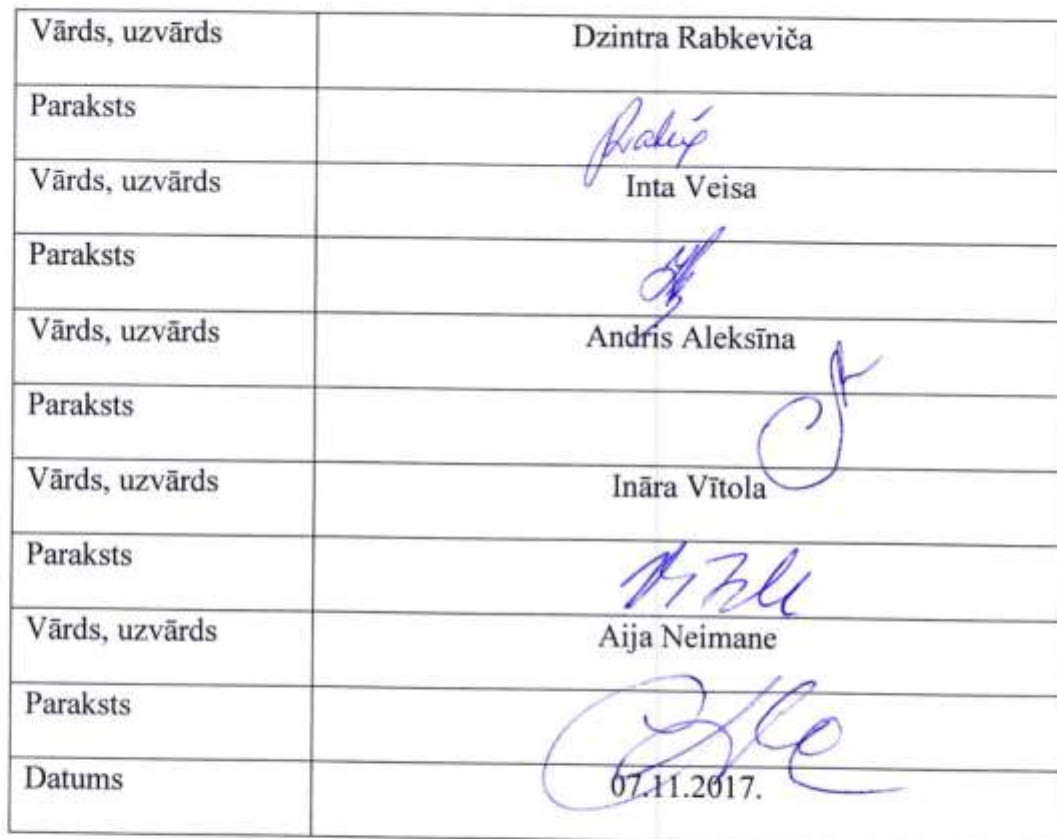 Vārds, uzvārds Dzintra Rabkeviča
Paraksts
Vārds, uzvārds Inta Veisa
Paraksts
Vārds, uzvārds Andris Aleksīna
Paraksts
Vārds, uzvārds Ināra Vītola
Paraksts
Vārds, uzvārds Aija Neimane
Paraksts
Datums 07.11.2017.